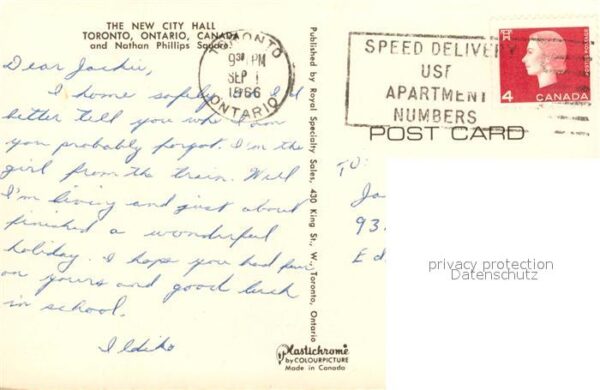 THE NEW CITY HALL
TORONTO, ONTARIO, CANADA
and Nathan Phillips Square
Dear Jackie,
I home safely. I'd
better tell you who I am
you probably forgot. I'm the
girl from the train. Well
I'm living and just about
finished a wonderful
holiday. I hope you had fun
on yours and good luck
in school.
Ildiko
TORONTO
9 30 PM
SEP 1
1966
ONTARIO
Published by Royal Specialty Sales, 430 King St., W., Toronto, Ontario
Plastichrome
by COLOURPICTURE
Made in Canada
SPEED DELIVERY
USE
APARTMENT
NUMBERS
POSTES POSTAGE
4 CANADA
POST CARD
TO:
Ja
93
Ed
privacy protection
Datenschutz